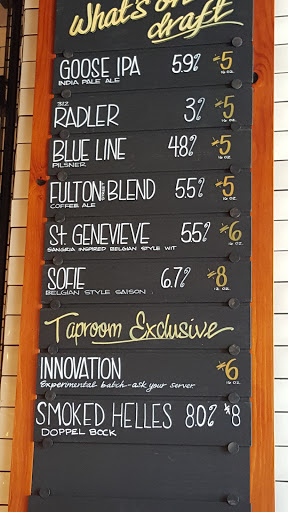 What's on
draft
GOOSE IPA 5.9% $5
INDIA PALE ALE 16 OZ.
312
RADLER 3% $5
16 OZ.
BLUE LINE 4.8% $5
PILSNER 16 OZ.
FULTON STREET BLEND 5.5% $5
COFFEE ALE 16 OZ.
St. GENEVIEVE 5.5% $6
SANGRIA INSPIRED BELGIAN STYLE WIT 16 OZ.
SOFIE 6.7% $8
BELGIAN STYLE SAISON 12 OZ.
Taproom Exclusive
INNOVATION $6
Experimental batch-ask your server 16 OZ.
SMOKED HELLES 8.0% $8
DOPPEL BOCK